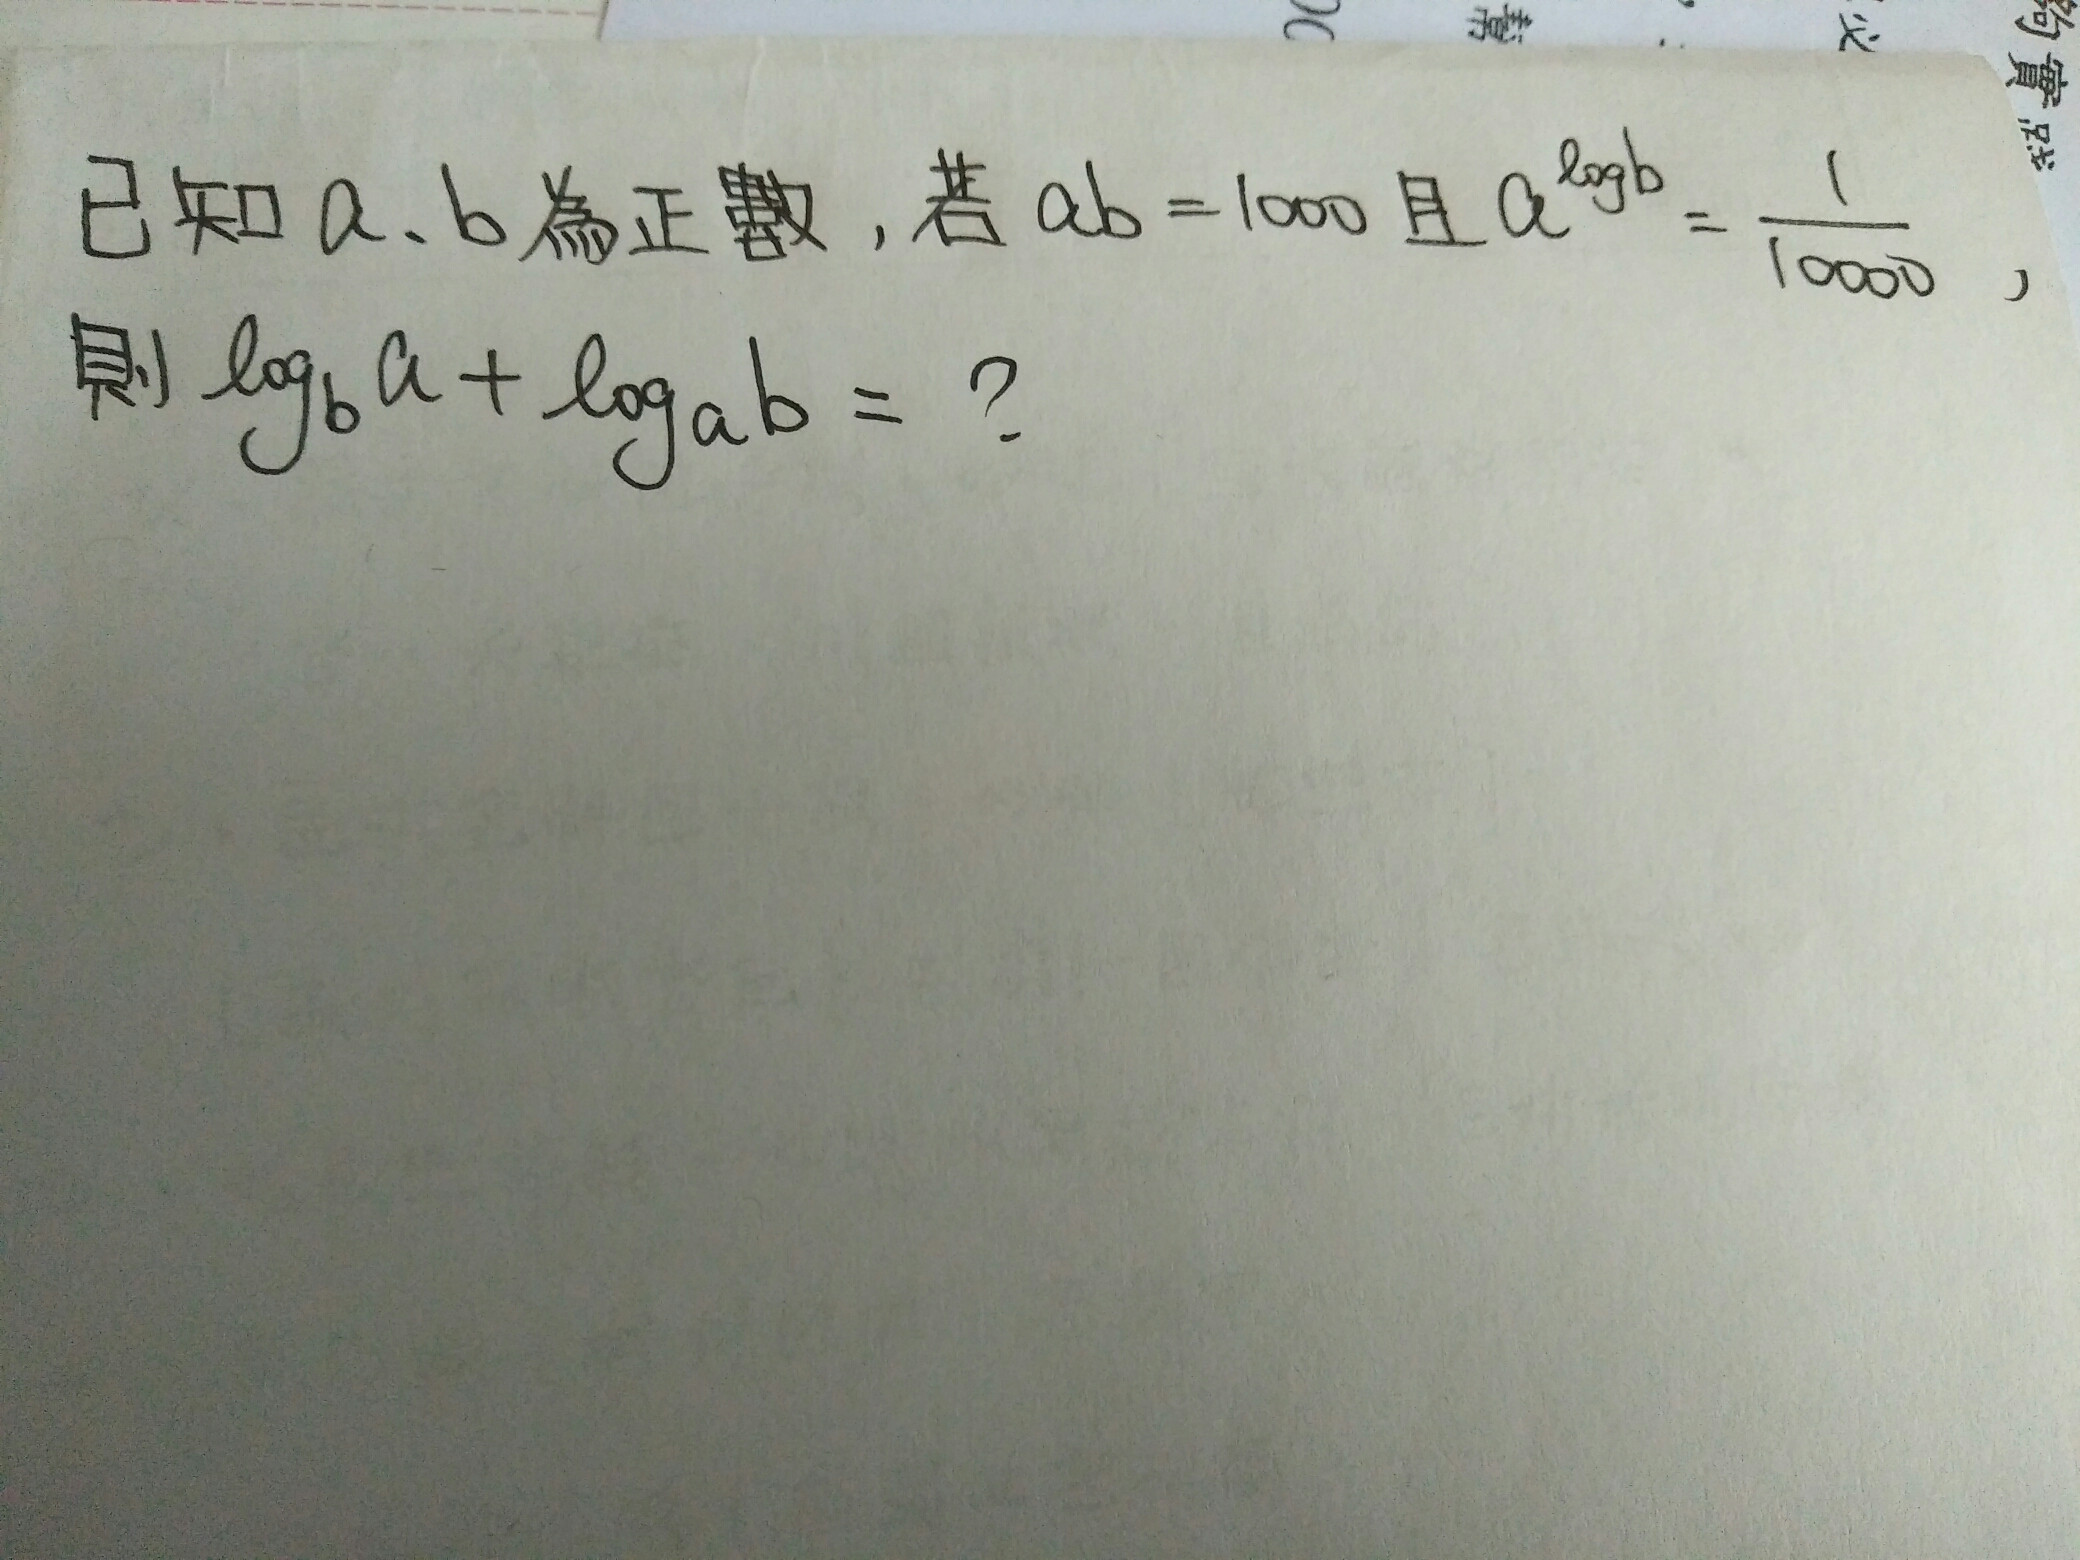 已知 a、b 為正數,若 ab=1000 且 a^{log b} = \frac{1}{10000},
則 log_b a + log_a b = ?